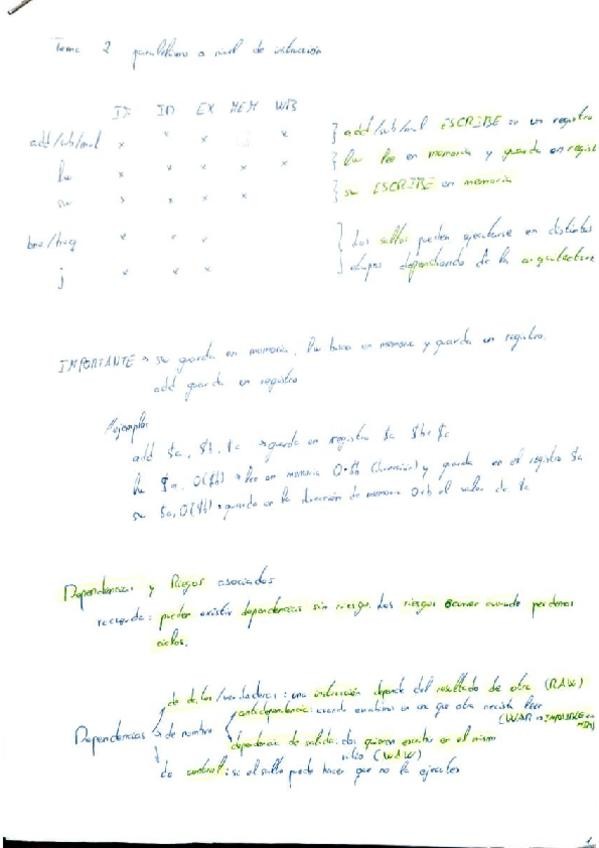 Tema 2 paralelismo a nivel de instrucción
IF ID EX MEM WB
add/sub/mul x x x x } add/sub/mul ESCRIBE en un registro
lw x x x x x } lw lee en memoria y guarda en regist
sw x x x x } sw ESCRIBE en memoria
bne/beq x x x } Los saltos pueden ejecutarse en distintas
j x x x etapas dependiendo de la arquitectura
IMPORTANTE → sw guarda en memoria, lw busca en memoria y guarda en registro.
add guarda en registro
Ejemplo:
add $a, $b, $c → guarda en registro $a $b+$c
lw $a, 0($b) → lee en memoria 0+$b (dirección) y guarda en el registro $a
sw $a, 0($b) → guarda en la dirección de memoria 0+b el valor de
Dependencias y Riesgos asociados
recuerda: pueden existir dependencias sin riesgo. Los riesgos ocurren cuando perdemos
ciclos.
de datos/verdaderas: una instrucción depende del resultado de otra (RAW)
Dependencias de nombre antidependencia: cuando escribimos en un que otra necesita leer
(WAR → IMPOSIBLE en
dependencia de salida: dos quieren escribir en el mismo
sitio (WAW)
de control: si el salto puede hacer que no la ejecutes
1